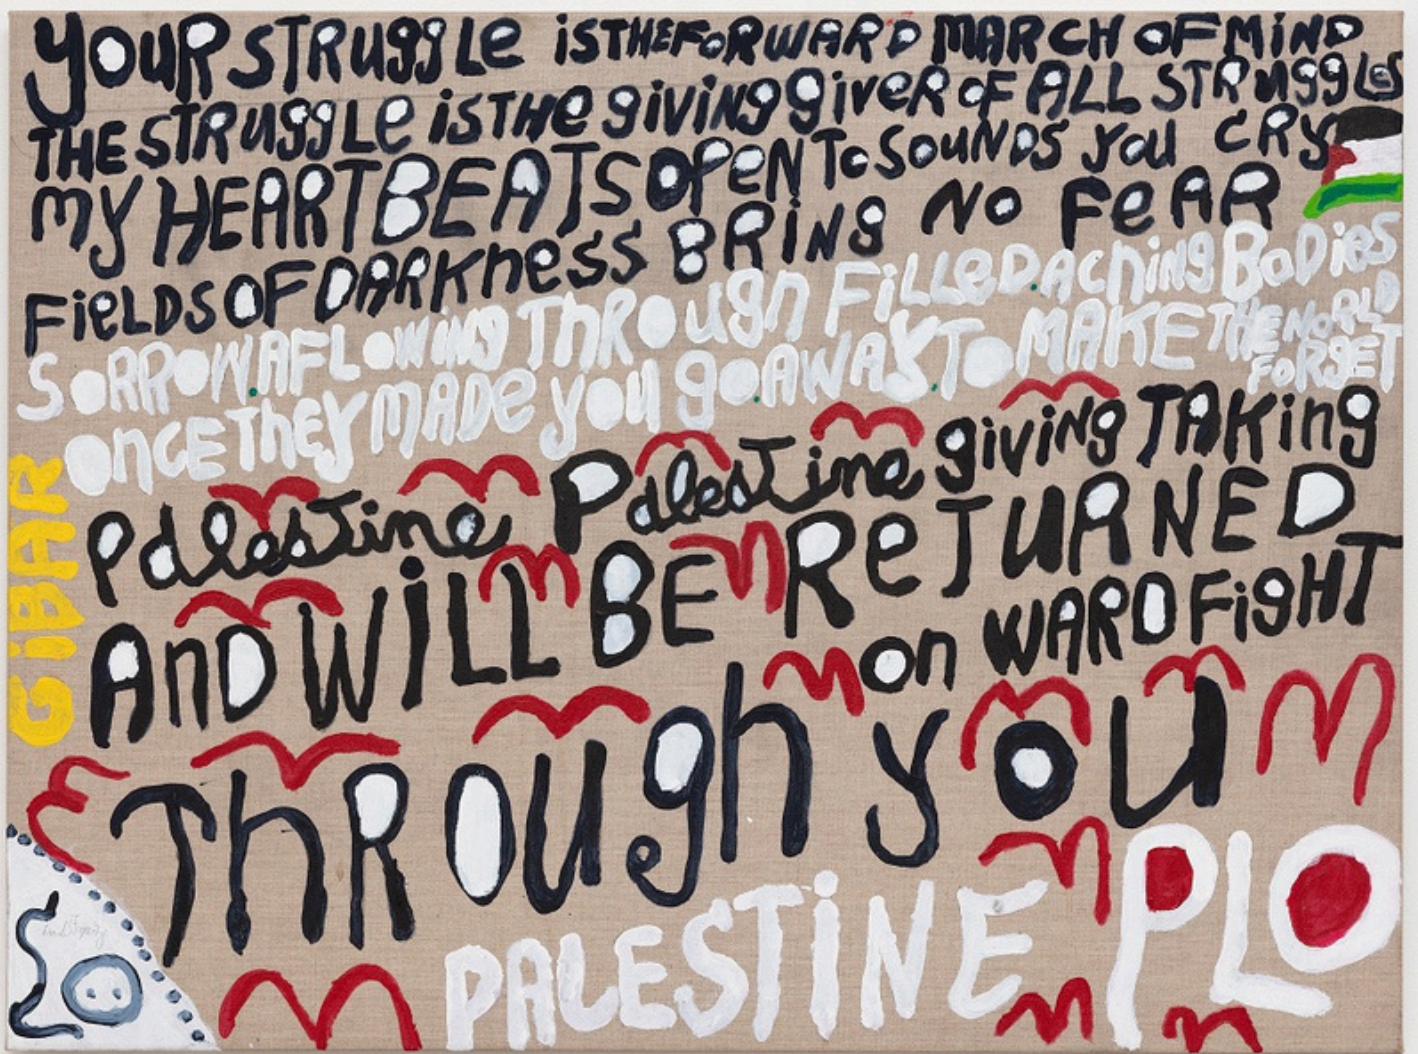 YOUR STRuggLe iSTHEFORWARD MARCH OF MiND
THE STRuggLe iSTHe giving giveR oF ALL STRuggLes
MY HEARTBEATS OPeN To SOUNDS You CRY
FieLDS OF DARKness BRiNg NO FeAR
SoRROW.AFLowing ThROugh FiLLeD.AChing BoDies
onceTheY MADe you go.AWAY.To MAKE THE WORLD FoRgET
Palestine Palestine giving TAKing
AnD WiLL BE ReTURNED
on WARD FigHT
ThROugh you
PALESTiNE PLO
GiBAR